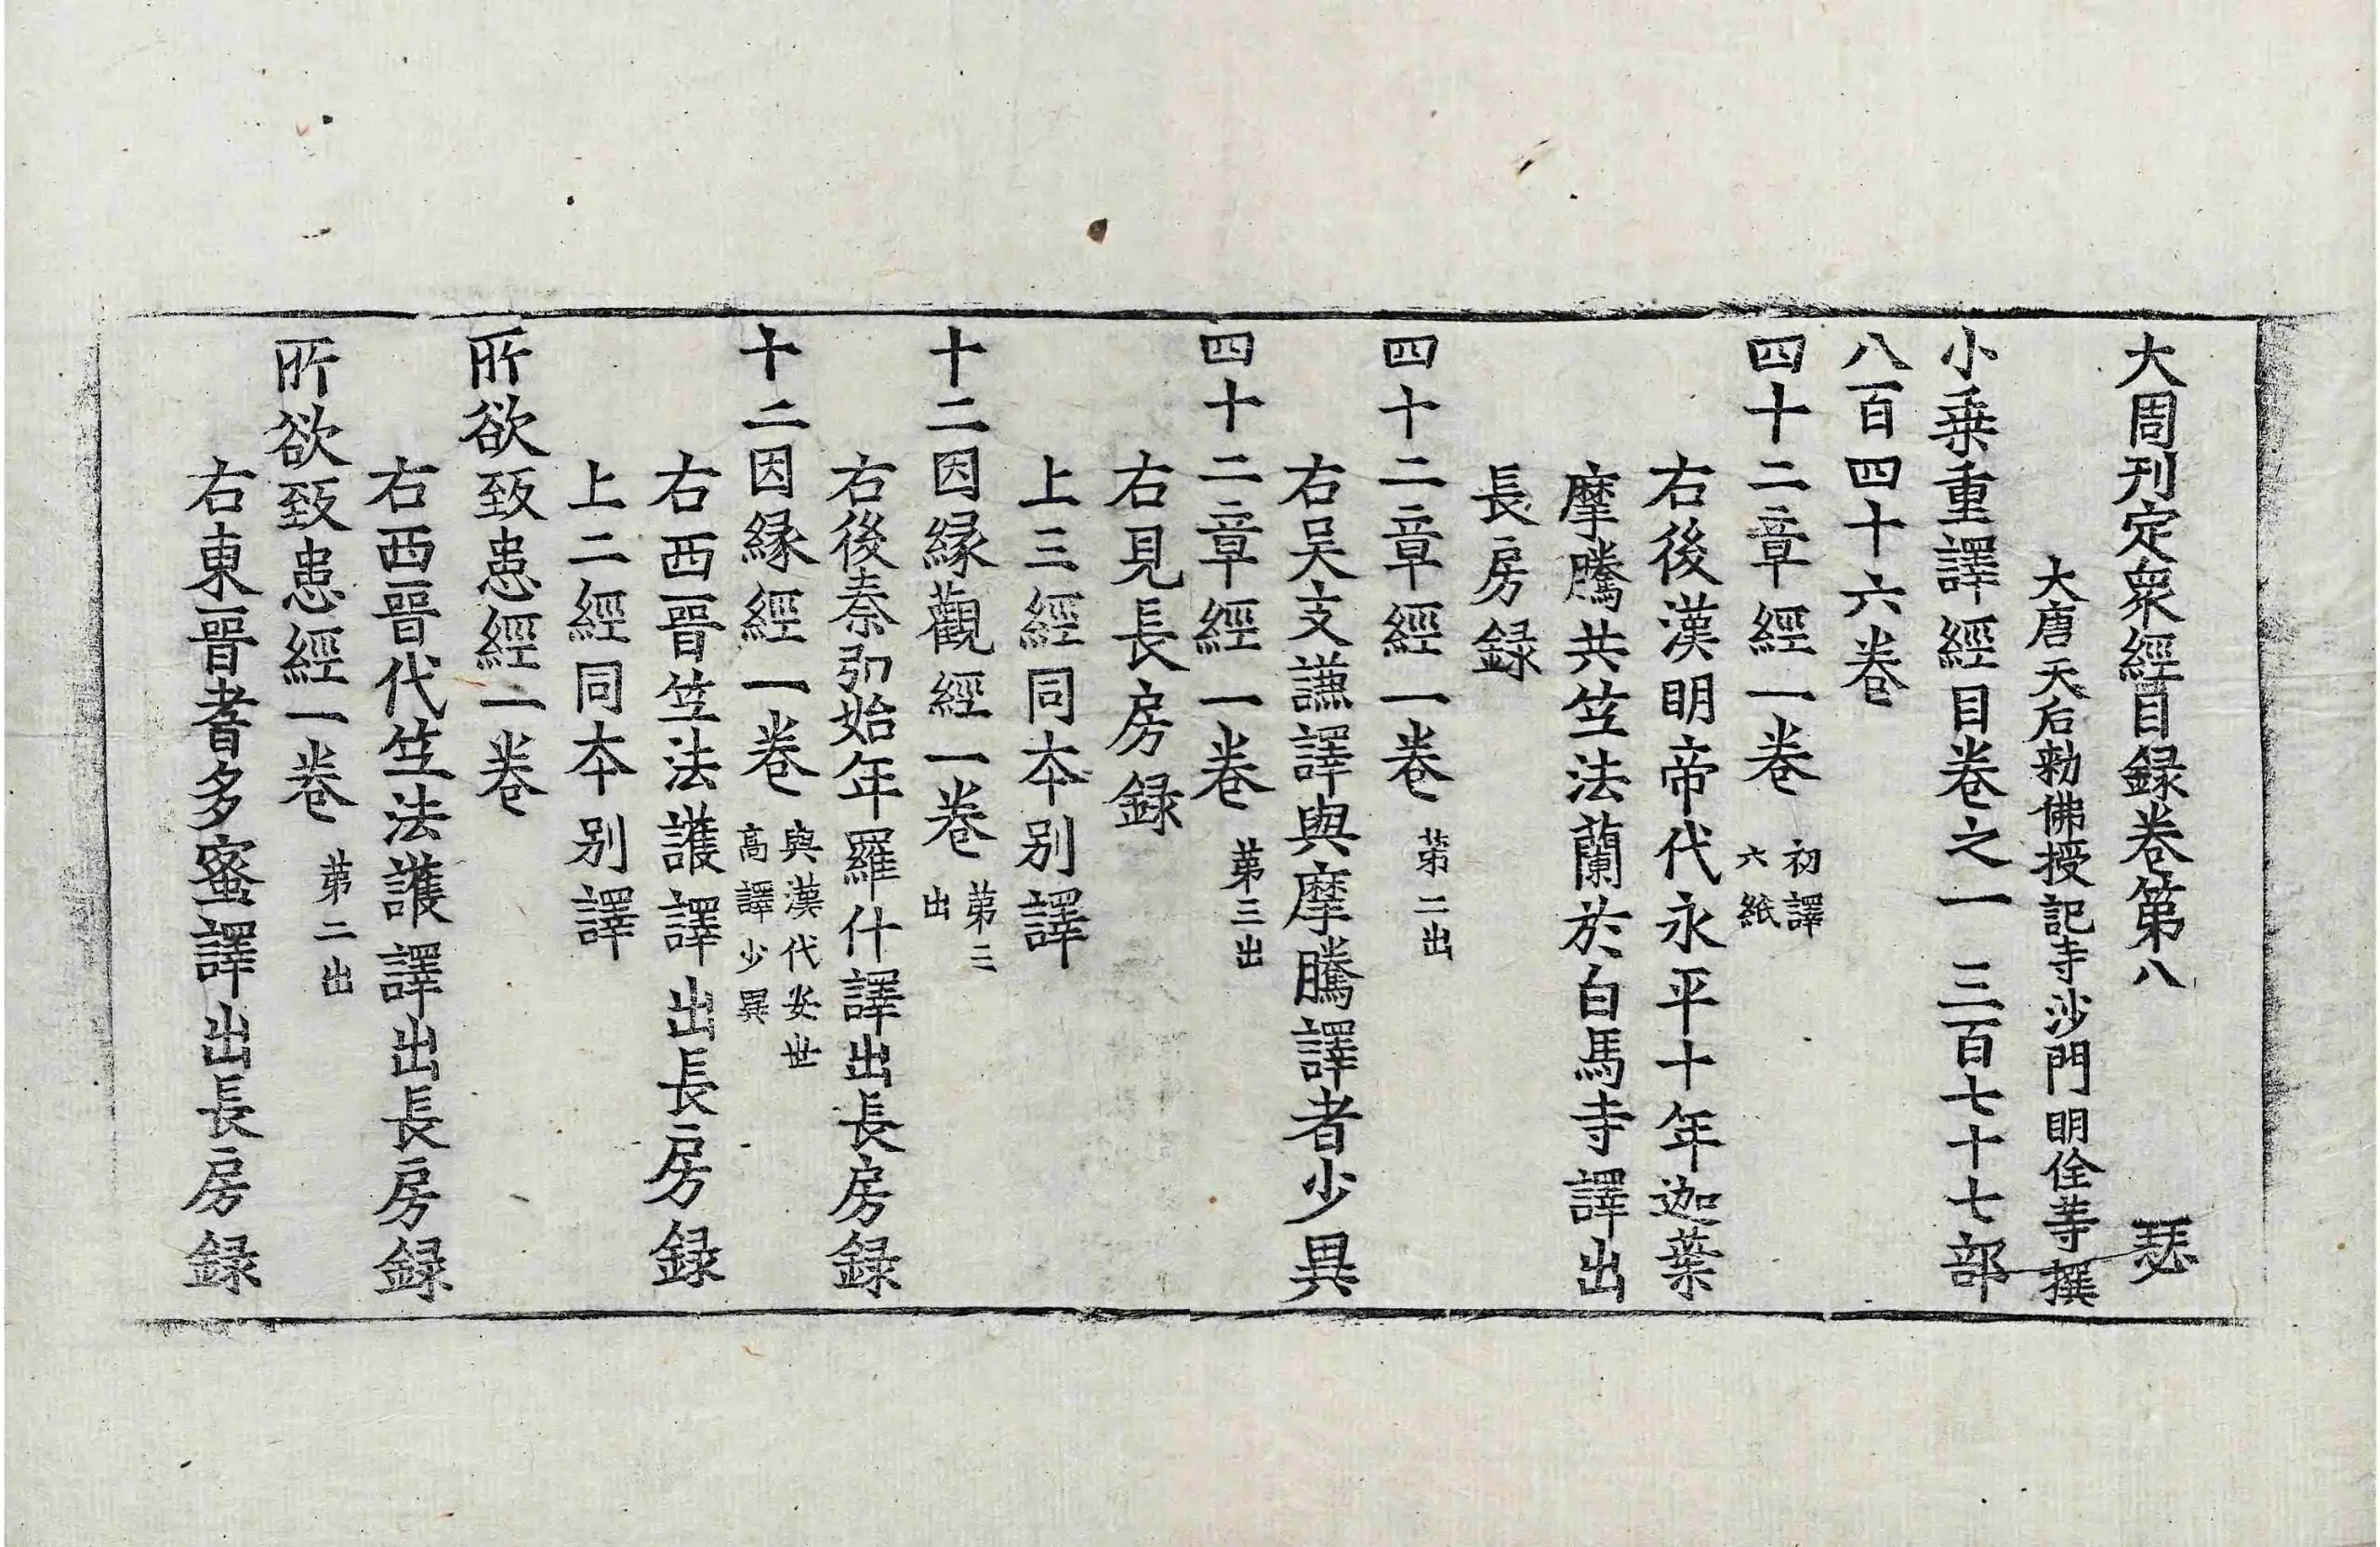 大周刊定衆經目録卷第八 瑟
大唐天后勅佛授記寺沙門明佺䓁撰
小乗重譯經目卷之一 三百七十七部
八百四十六卷
四十二章經一卷 初譯
六紙
右後漢明帝代永平十年迦葉
摩騰共笁法蘭於白馬寺譯出
長房録
四十二章經一卷 苐二出
右吴支謙譯與摩騰譯者少異
四十二章經一卷 苐三出
右見長房録
上三經同本别譯
十二因縁觀經一卷 苐三
出
右後秦弘始年羅什譯出長房録
十二因縁經一卷 與漢代安世
高譯少異
右西晉笁法護譯出長房録
上二經同本别譯
所欲致患經一卷
右西晉代笁法護譯出長房録
所欲致患經一卷 苐二出
右東晉耆多蜜譯出長房録